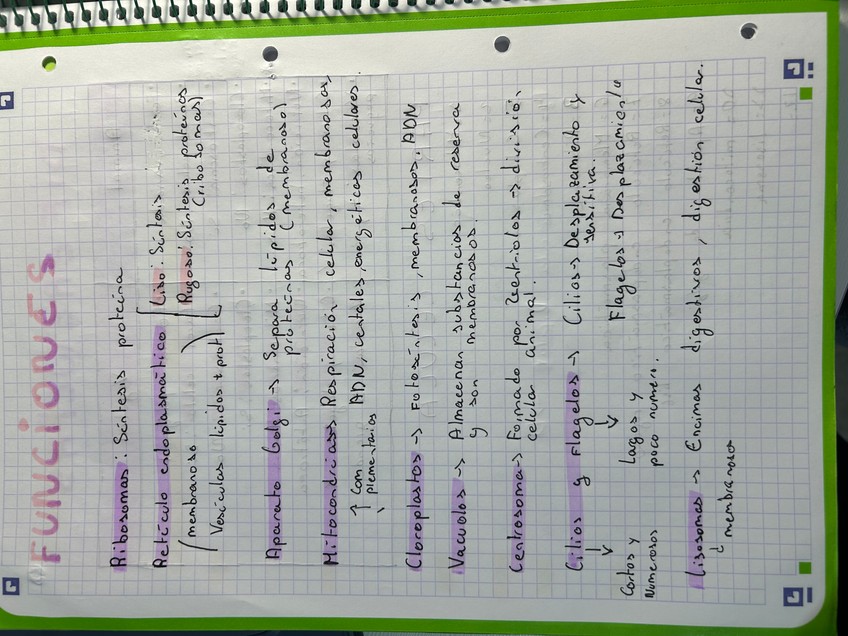 FUNCIONES
Ribosomas: Síntesis proteína
Retículo endoplasmático
Liso: Síntesis
(membranoso)
Rugoso: Síntesis proteínas
(ribosomas)
Vesículas lípidos + prot
Aparato Golgi → Separa lípidos de
proteínas (membranoso)
Mitocondrias Respiración celular, membranosos,
ADN, centrales energéticas celulares.
↑ Com
plementarios
Cloroplastos → Fotosíntesis, membranosos, ADN
Vacuolas → Almacenan substancias de reserva
y son membranosos.
Centrosoma → Formado por centriolos → división
celular animal.
Cilios y Flagelos → Cilios → Desplazamiento y
sensitiva.
Flagelos → Desplazamiento
Cortos y
Numerosos
Largos y
poco numero.
Lisosomas → Encimas digestivos, digestión celular.
↓ membranoso